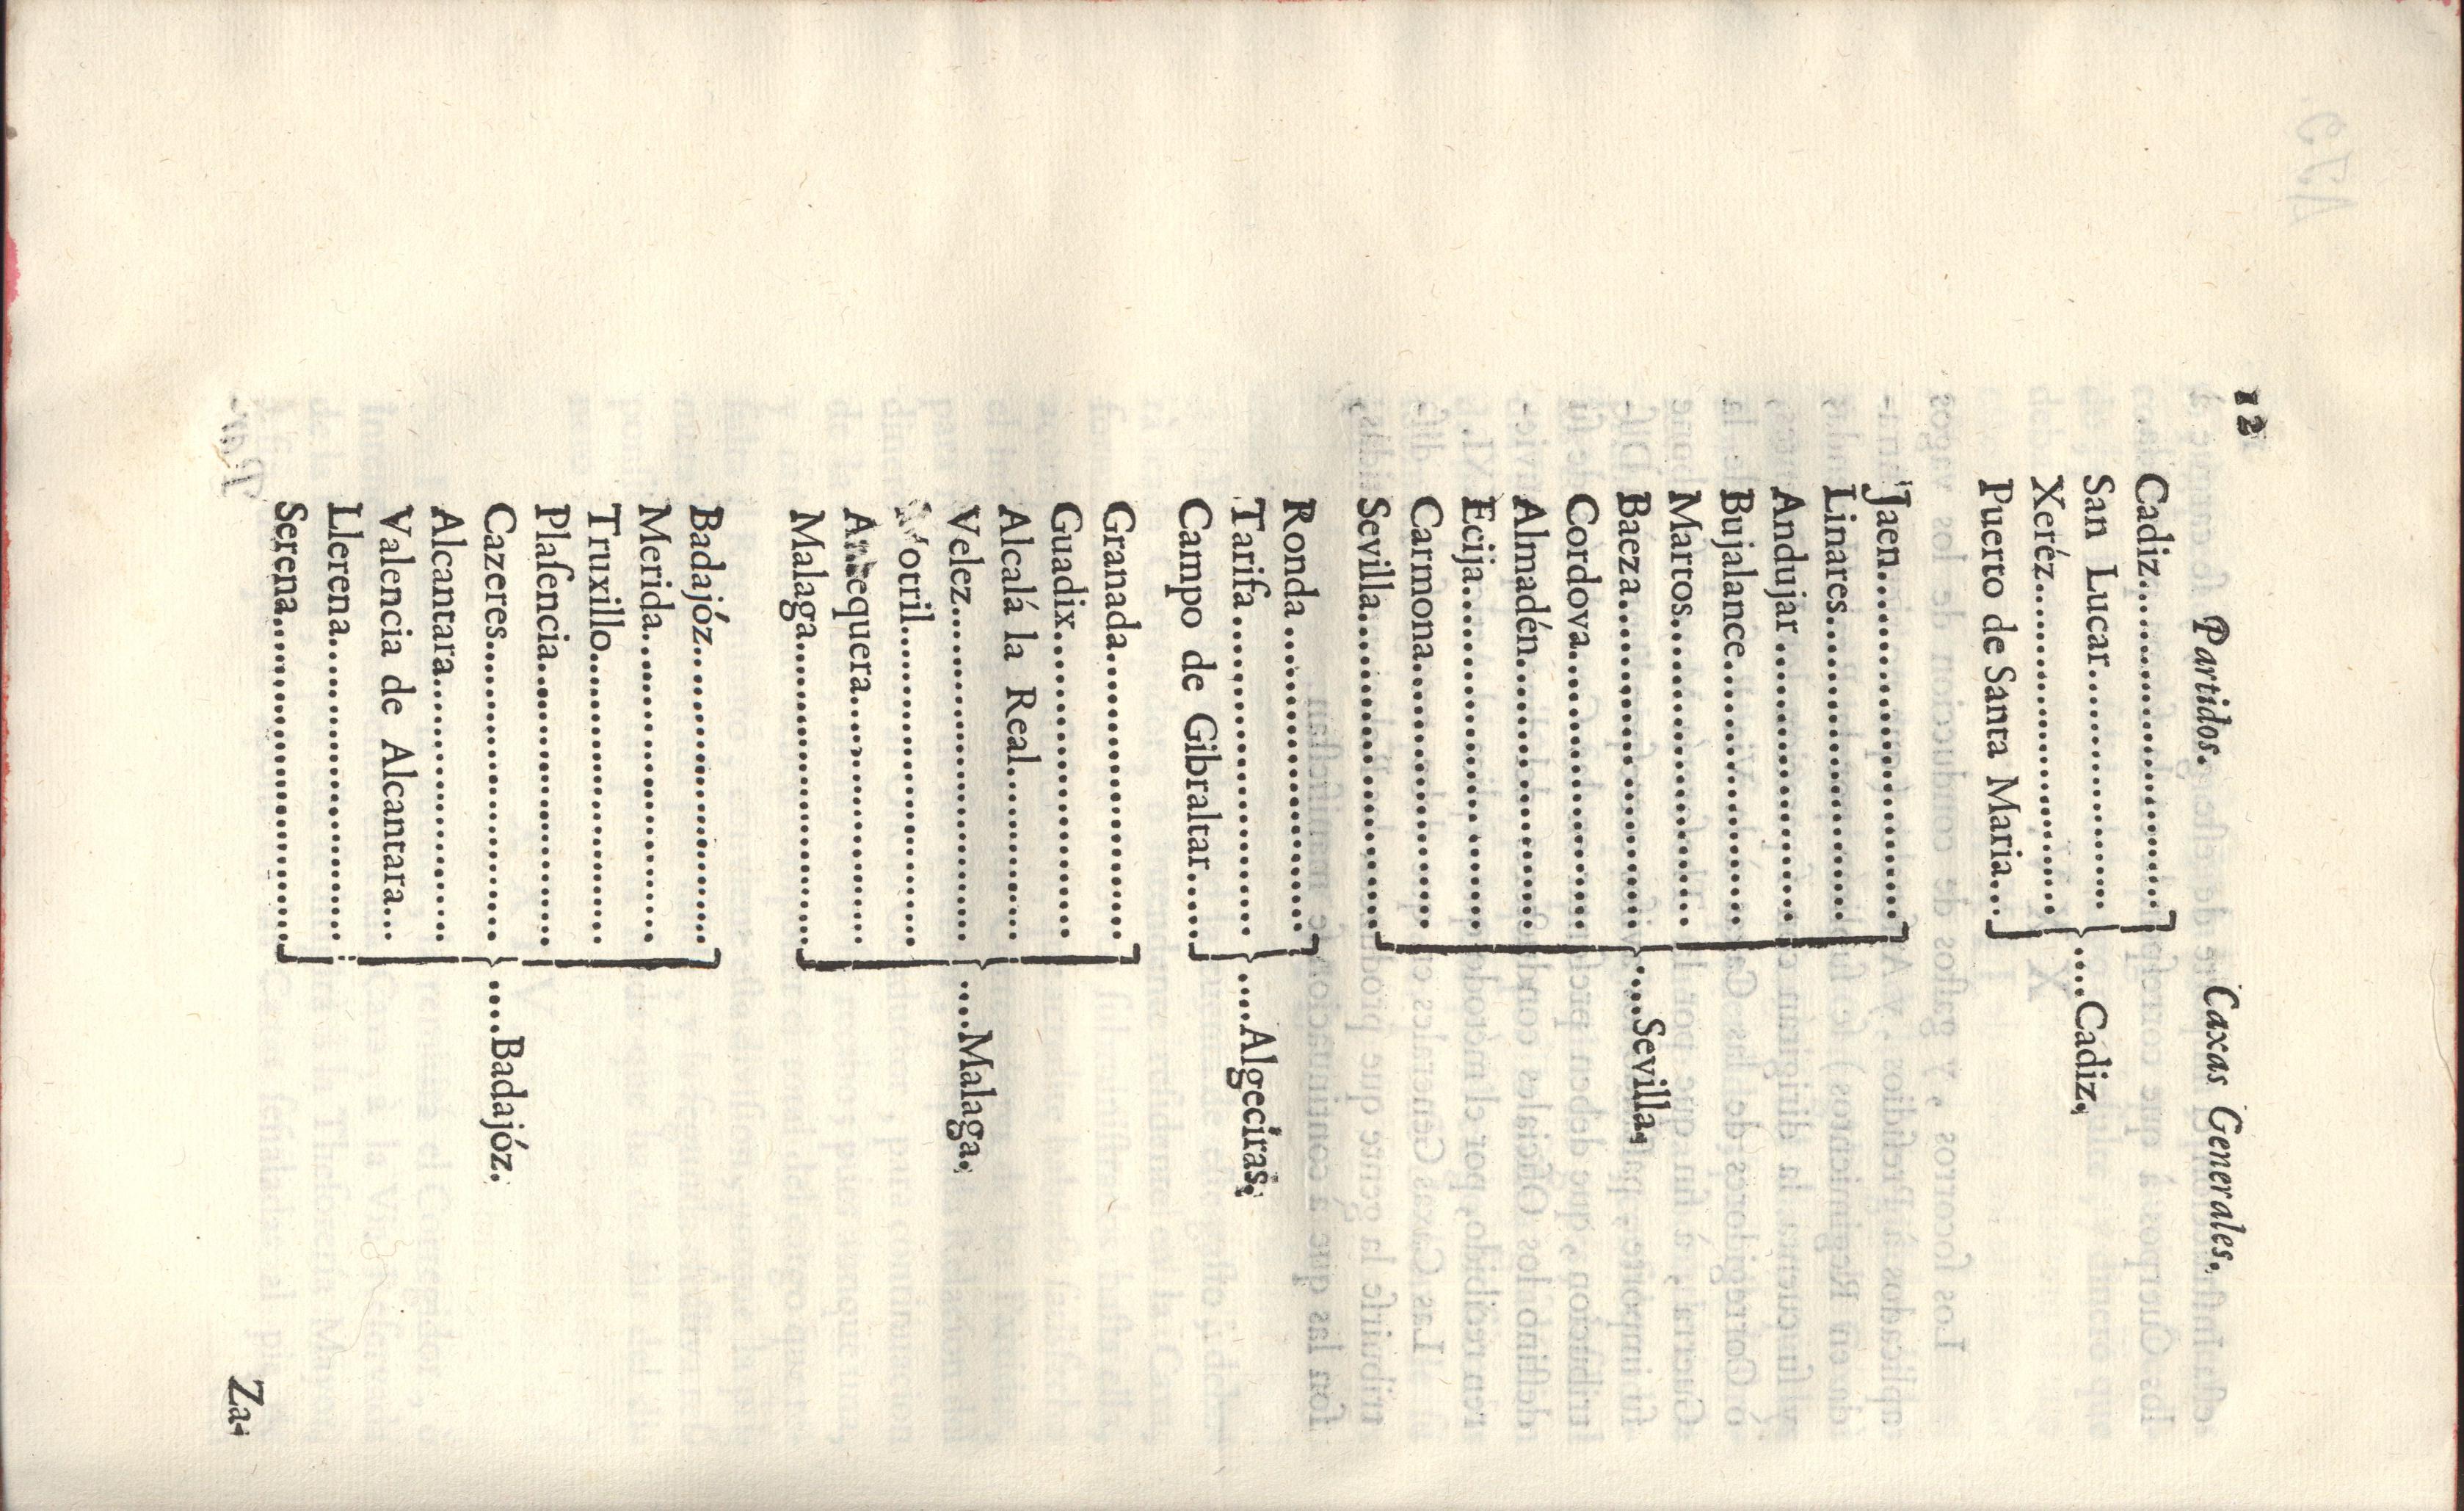 12
Partidos. Caxas Generales.
Cadiz........................
San Lucar.................. ....Cadiz.
Xeréz........................
Puerto de Santa Maria...
Jaen..........................
Linares......................
Andujar.....................
Bujalance...................
Martos.......................
Baeza........................ ....Sevilla.
Cordova.....................
Almadén....................
Ecija..........................
Carmona....................
Sevilla........................
Ronda........................
Tarifa........................ ....Algeciras.
Campo de Gibraltar.....
Granada.....................
Guadix.......................
Alcalá la Real.............
Velez......................... ....Malaga.
Motril........................
Antequera..................
Malaga.......................
Badajóz......................
Merida.......................
Truxillo......................
Plaſencia....................
Cazeres...................... ....Badajóz.
Alcantara...................
Valencia de Alcantara...
Llerena......................
Serena.......................
Za-